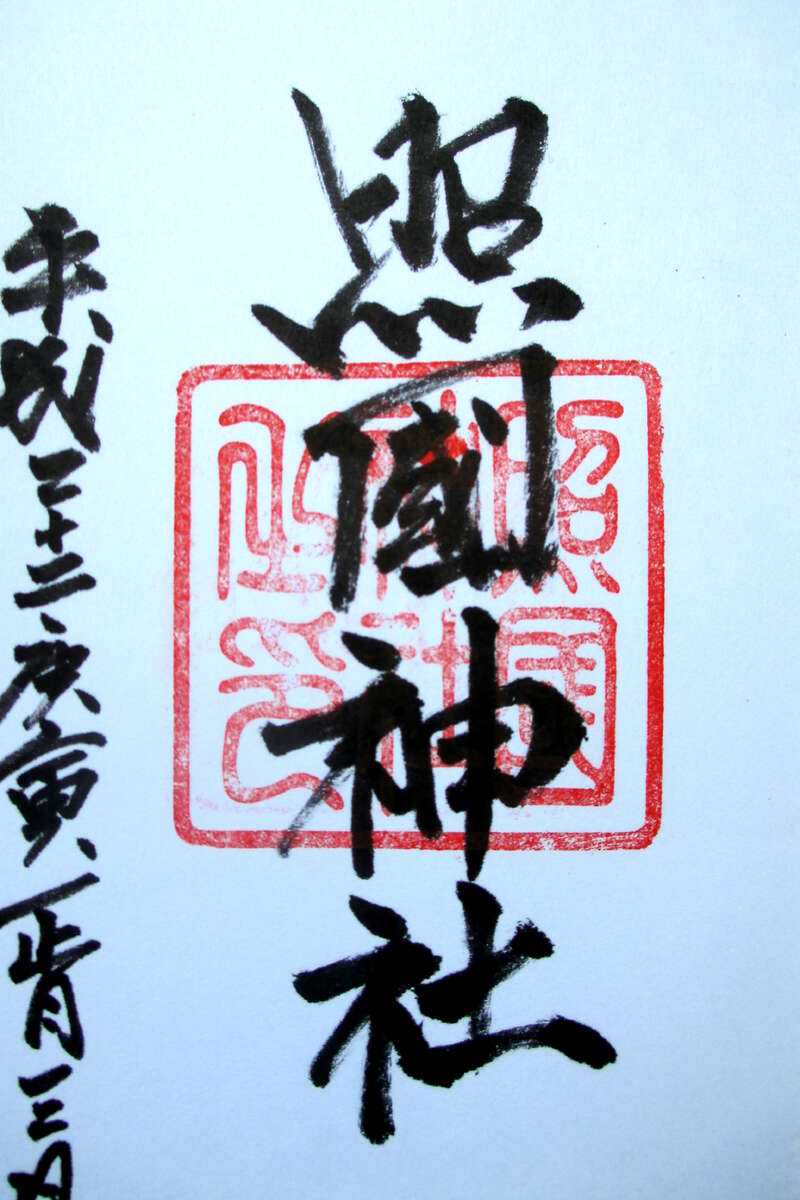 照國神社
平成二十二庚寅正月三日
照國
神社
之印